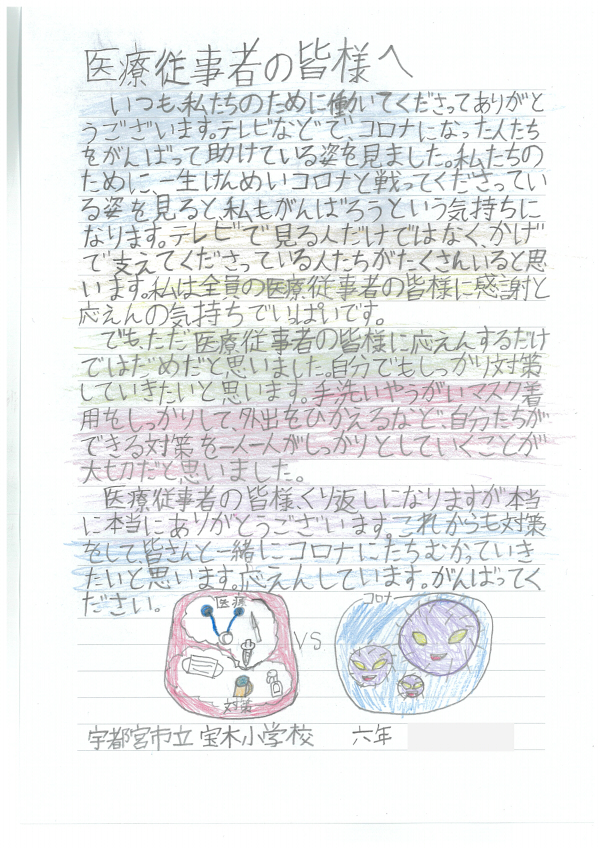 医療従事者の皆様へ
いつも、私たちのために働いてくださってありがと
うございます。テレビなどで、コロナになった人たち
をがんばって助けている姿を見ました。私たちの
ために、一生けんめいコロナと戦ってくださってい
る姿を見ると、私もがんばろうという気持ちに
なります。テレビで見る人だけではなく、かげ
で支えてくださっている人たちがたくさんいると思
います。私は全員の医療従事者の皆様に感謝と
応えんの気持ちでいっぱいです。
でも、ただ医療従事者の皆様に応えんするだけ
ではだめだと思いました。自分でもしっかり対策
していきたいと思います。手洗いやうがい、マスク着
用をしっかりして、外出をひかえるなど、自分たちが
できる対策を一人一人がしっかりとしていくことが
大切だと思いました。
医療従事者の皆様、くり返しになりますが本当
に本当にありがとうございます。これからも対策
をして、皆さんと一緒にコロナにたちむかっていき
たいと思います。応えんしています。がんばってく
ださい。
医療
対策
VS
コロナ
宇都宮市立宝木小学校 六年